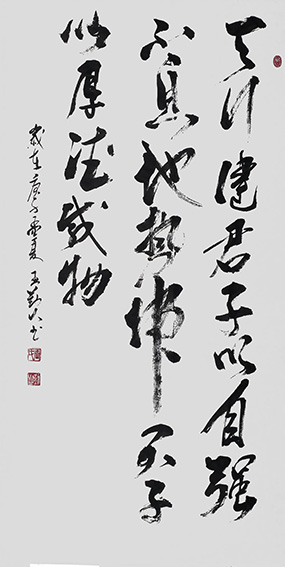 天行健君子以自强
不息地势坤君子
以厚德载物
岁在庚子夏